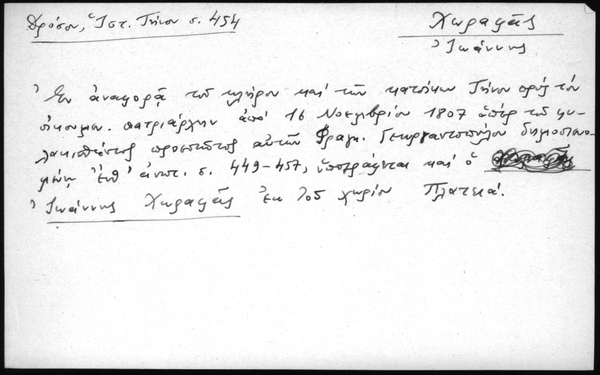 Δρόσου, Ἱστ. Τήνου σ. 454
Χωραφᾶς
Ἰωάννης
Ἐν ἀναφορᾷ τοῦ κλήρου καὶ τῶν κατοίκων Τήνου πρὸς τὸν
οἰκουμ. πατριάρχην ἀπὸ 16 Νοεμβρίου 1807 ὑπὲρ τοῦ φυ-
λακισθέντος προεστῶτος αὐτῶν Φραγκ. Γεωργαντοπούλου δημοσιευο-
μένῃ ἐνθ' ἀνωτ. σ. 449-457, ὑπογράφεται καὶ ὁ
Ἰωάννης Χωραφᾶς ἐκ τοῦ χωρίου Πλατειά.